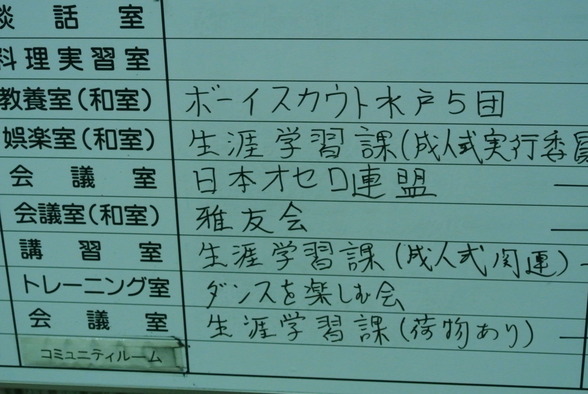 談話室
料理実習室
教養室(和室) ボーイスカウト水戸5団
娯楽室(和室) 生涯学習課(成人式実行委員
会議室 日本オセロ連盟
会議室(和室) 雅友会
講習室 生涯学習課(成人式関連)
トレーニング室 ダンスを楽しむ会
会議室 生涯学習課(荷物あり)
コミュニティルーム